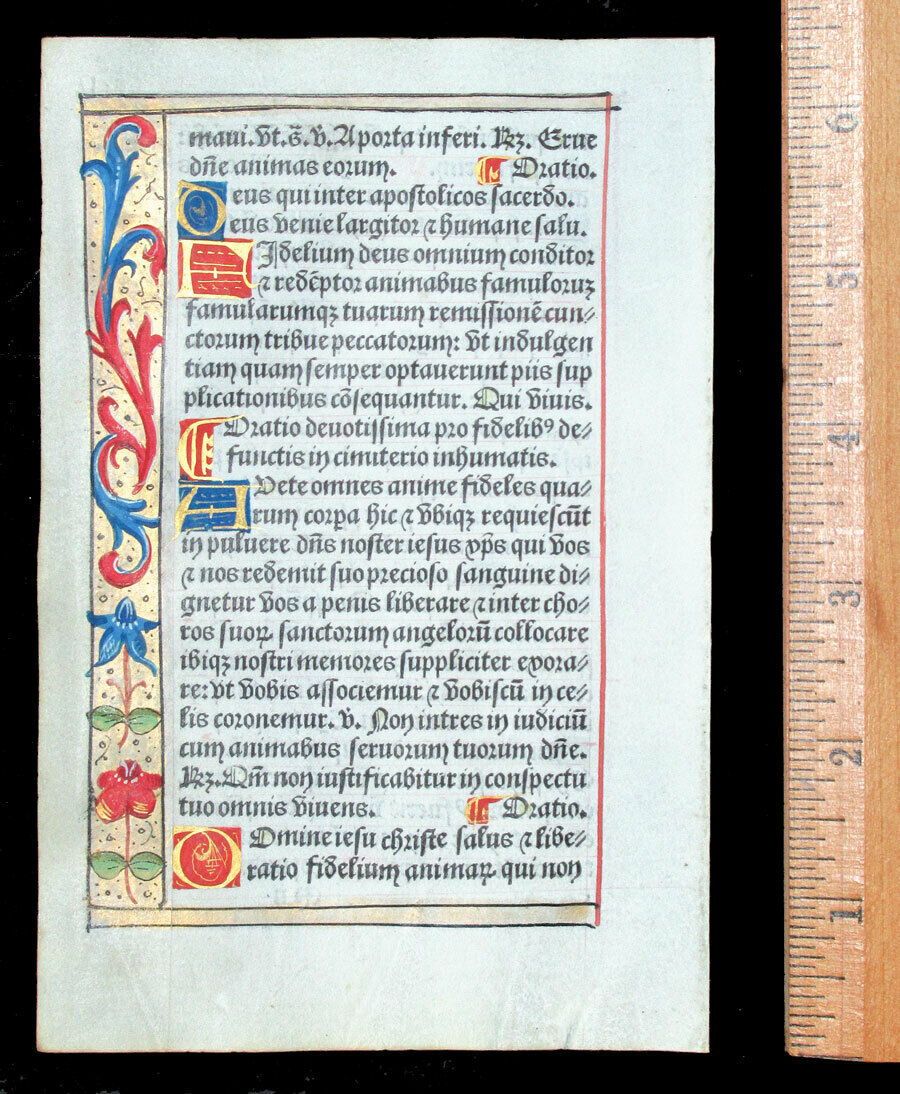 maui. Vt. s̄. V. A porta inferi. Rꝫ. Erue
dn̄e animas eorum. ¶ Oratio.
Deus qui inter apostolicos sacerdo.
eus venie largitor ⁊ humane salu.
FIdelium deus omnium conditor
⁊ redēptor animabus famuloruꝫ
famularumqꝫ tuarum remissionē cun⸗
ctorum tribue peccatorum: vt indulgen
tiam quam semper optauerunt piis sup
plicationibus cōsequantur. Qui viuis.
¶ Oratio deuotissima pro fidelibꝰ de⸗
functis in cimiterio inhumatis.
AVete omnes anime fideles qua⸗
rum corpa hic ⁊ vbiqꝫ requiescūt
in puluere dn̄s noster iesus xp̄s qui vos
⁊ nos redemit suo precioso sanguine di⸗
gnetur vos a penis liberare ⁊ inter cho⸗
ros suoꝝ sanctorum angelorū collocare
ibiqꝫ nostri memores suppliciter exora⸗
re: vt vobis associemur ⁊ vobiscū in ce⸗
lis coronemur. V. Non intres in iudiciū
cum animabus seruorum tuorum dn̄e.
Rꝫ. Qm̄ non iustificabitur in conspectu
tuo omnis viuens. ¶ Oratio.
DOmine iesu christe salus ⁊ libe⸗
ratio fidelium animaꝝ qui non
6
5
4
3
2
1